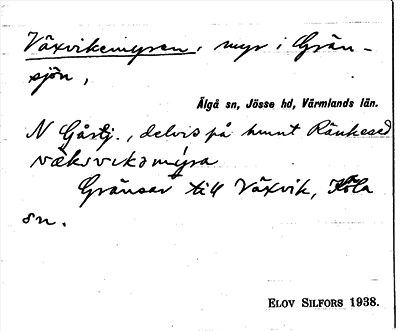 Växvikemyren, myr i Grän-
sjön,
Älgå sn, Jösse hd, Värmlands län.
N Gårdsj., delvis på hmnt Ränkesed
väksvikəmýra
Gränsar till Växvik, Köla
sn.
ELOV SILFORS 1938.